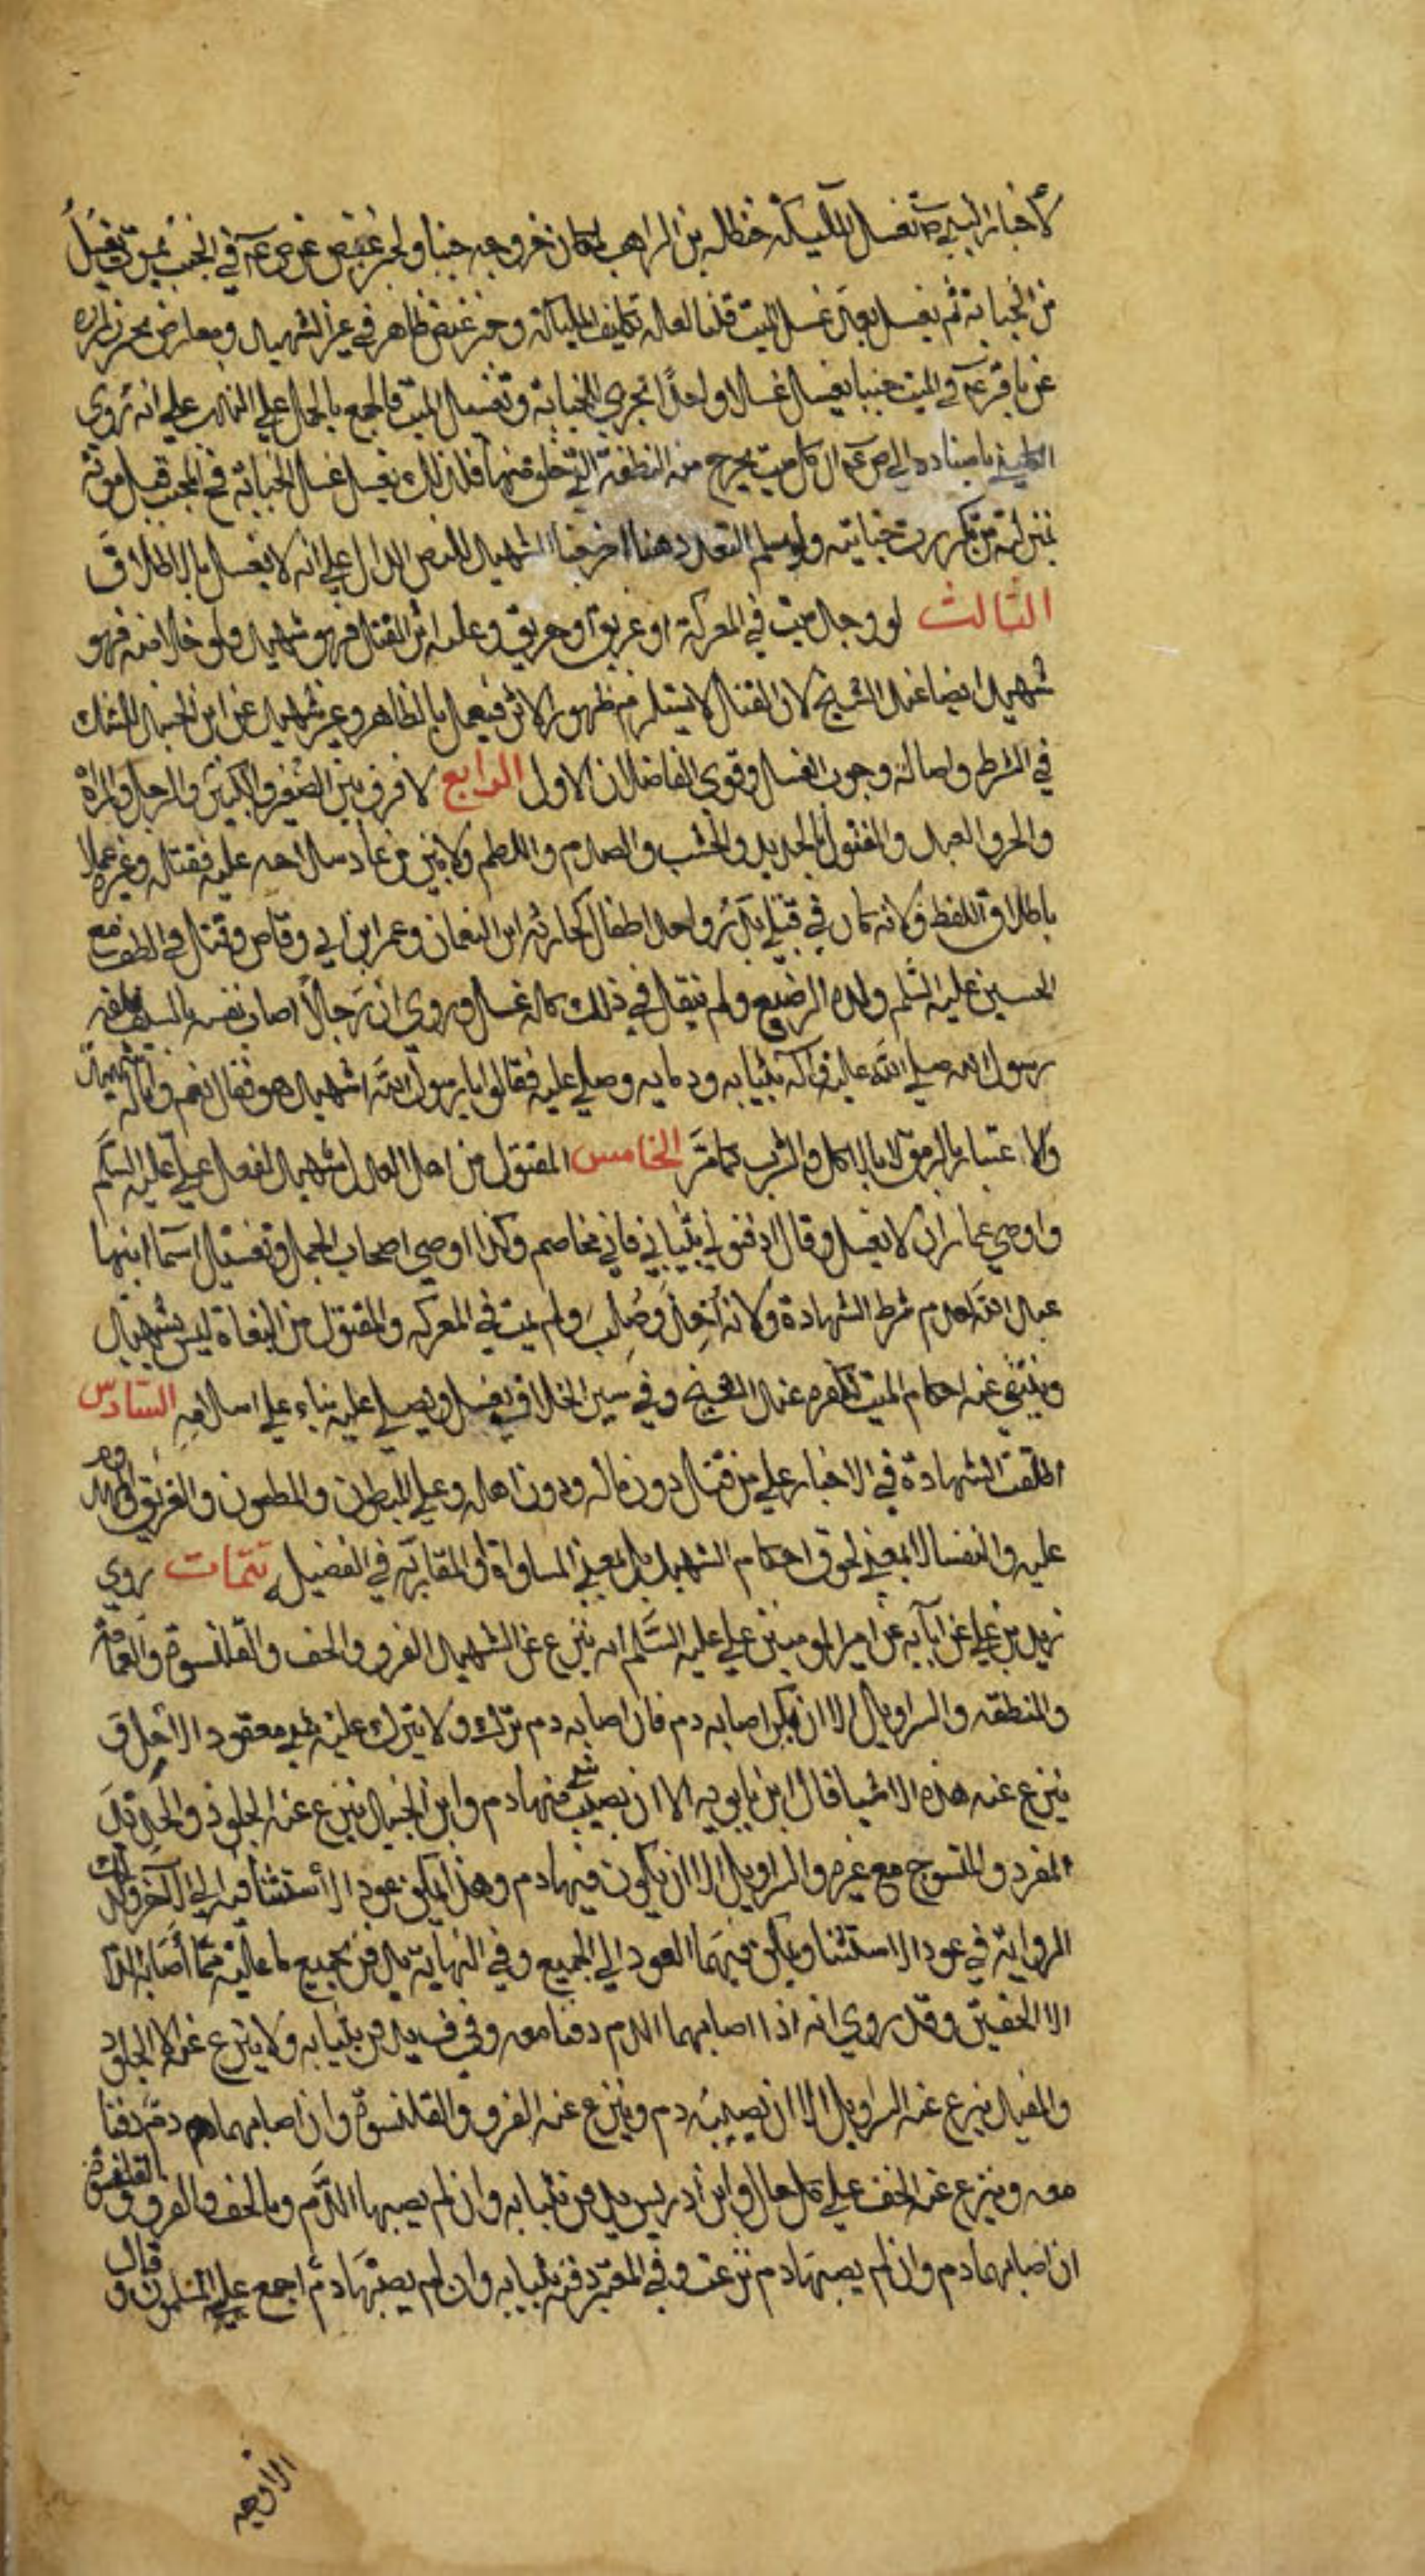 لأخبار النبي ص تغسيل الملئيكة حنظلة بن الراهب لمكان خروجه جنبا ولخبر عيص عن ص ع في الجنب يموت يغسل
من الجنابة ثم يغسل بعد غسل الميت قلنا لعله تكليف الملئيكة وخبر عيص ظاهر في غير الشهيد ومعارض بخبر زرارة
عن باقر ع في الميت جنبا يغسل غسلا واحدا تجزي للجنابة وتغسيل الميت فالجمع بالحمل على الندب على انه روى
الكليني باسناده الى ص ع ان كل ميت يخرج منه النطفة التي خلق منها فلذلك يغسل غسل الجنابة فح الجنب قبل موته
بمنزلة من تكررت جنابته ولو سلم التعدد هنا اخرجنا الشهيد للنص الدال على انه لا يغسل بالاطلاق
الثالث لو وجد ميت في المعركة او غريق او حريق وعليه اثر القتل فهو شهيد ولو خلا منه فهو
شهيد ايضا عند الشيخ لان القتل لا يستلزم ظهور الاثر فيعمل بالظاهر وغير شهيد عن ابن الجنيد للشك
في الشرط واصالة وجوب الغسل وقوى الفاضلان الاول الرابع لا فرق بين الصغير والكبير والرجل والمراة
والحر والعبد والمقتول بالحديد والخشب والصدم واللطم ولا بين من عاد سلاحه عليه فقتله وغيره عملا
باطلاق اللفظ ولانه كان في قتلى بدر واحد اطفال كحارثة ابن النعمان وعمر ابن ابي وقاص وقتل في الطف مع
الحسين عليه السلم ولده الرضيع ولم ينقل في ذلك كله غسل وروي ان رجلا اصاب نفسه بالسيف فلفه
رسول الله صلى الله عليه واله بثيابه ودمايه وصلى عليه فقالوا يا رسول الله اشهيد هو فقال نعم وانا له شهيد
ولا اعتبار بالرمق لا بالاكل والشرب كما مر الخامس المقتول من اهل العدل شهيد لفعل علي عليه السلم
واوصى عمار ان لا يغسل وقال ادفنوني بثيابي فاني مخاصم وكذا اوصى اصحاب الجمل وتغسيل اسما ابنها
عبد الله لعدم شرط الشهادة ولانه اخذ وصلب ولم يمت في المعركه والمقتول من البغاة ليس بشهيد
وينتفي عنه احكام الميت لكفره عند الشيخ وفي سير الخلاف يغسل ويصلى عليه بناء على اسلامه السادس
اطلقت الشهادة في الاخبار على من قتل دون ماله ودون اهله وعلى المبطون والمطعون والغريق والمهدوم
عليه والنفسا لا بمعنى لحوق احكام الشهيد بل بمعنى المساواة او المقاربة في الفضيلة تتمات روى
زيد بن علي عن آبآيه عن امير المومنين علي عليه السلم انه ينزع عن الشهيد الفرو والخف والقلنسوة والعمامة
والمنطقه والسراويل الا ان يكن اصابه دم فان اصابه دم ترك ولا يترك عليه شي معقود الا حل و
ينزع عنه هذه الاشيا قال ابن بابويه الا ان يصيب شي منها دم وابن الجنيد ينزع عنه الجلود والحديد
المفرد والمنسوج مع غيره والسراويل الا ان يكون فيها دم وهذا يمكن عود الاستثنا فيه الى الآخر وكذلك
الرواية في عود الاستثنا ويمكن فيهما العود الى الجميع وفي النهاية يدفن بجميع ما عليه مما اصابه الدم
الا الخفين وقد روي انه اذا اصابهما الدم دفنا معه وفي ف يدفن بثيابه ولا ينزع عنه الا الجلود
والمفيد ينزع عنه السراويل الا ان يصيبه دم وينزع عنه الفرو والقلنسوة وان اصابهما دم دفنا
معه وينزع عنه الخف على كل حال وابن ادريس يدفن بثيابه وان لم يصبها الدم وبالخف والفرو والقلنسوة
ان اصابها دم وان لم يصبها دم نزعت وفي المعتبر دفنه بثيابه وان لم يصبها دم اجمع عليه المسلمون وقال
الاوجه